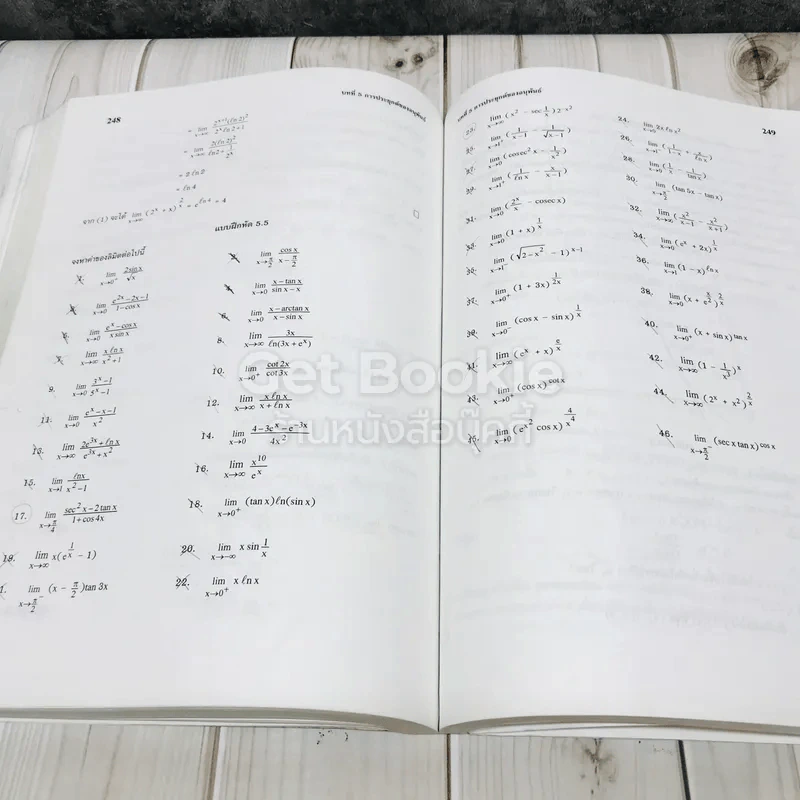 248
บทที่ 5 การประยุกต์ของอนุพันธ์
= lim x→∞ 2^{x+1}(ℓn 2)^2 / 2^x ℓn 2+1
= lim x→∞ 2(ℓn 2)^2 / ℓn 2+ 1/2^x
= 2 ℓn 2
= ℓn 4
จาก (1) จะได้ lim x→∞ (2^x + x)^{2/x} = e^{ℓn 4} = 4
□
แบบฝึกหัด 5.5
จงหาค่าของลิมิตต่อไปนี้
lim x→0+ 2sin x / √x
lim x→π/2 cos x / x − π/2
lim x→0 e^{2x}−2x−1 / 1−cos x
lim x→0 x−tan x / sin x−x
lim x→0 e^x−cos x / x sin x
6. lim x→0 x−arctan x / x−sin x
7. lim x→∞ x ℓn x / x^2+1
8. lim x→∞ 3x / ℓn(3x + e^x)
9. lim x→0 3^x−1 / 5^x−1
10. lim x→0+ cot 2x / cot 3x
11. lim x→0 e^x−x−1 / x^2
12. lim x→∞ x ℓn x / x + ℓn x
13. lim x→∞ 2e^{3x} + ℓn x / e^{3x} + x^2
14. lim x→0 4−3e^x−e^{−3x} / 4x^2
15. lim x→1 ℓnx / x^2−1
16. lim x→∞ x^{10} / e^x
17. lim x→π/4 sec^2 x−2 tan x / 1+cos 4x
18. lim x→0+ (tan x) ℓn(sin x)
19. lim x→∞ x(e^{1/x} − 1)
20. lim x→−∞ x sin 1/x
1. lim x→π/2− (x − π/2)tan 3x
22. lim x→0+ x ℓn x
บทที่ 5 การประยุกต์ของอนุพันธ์
249
lim x→∞ (x^2 − sec 1/x) 2^{−x^2}
24. lim x→0 2x ℓn x^2
lim x→1+ (1/x−1 − 1/√x−1)
26. lim x→1− (1/1−x + 1/ℓn x)
lim x→0 (cosec^2 x − 1/x^2)
28. lim x→0 (1/x − 1/tan x)
lim x→1+ (1/ℓn x − x/x−1)
30. lim x→π/2− (tan 5x − tan x)
lim x→0 (2^x/x − cosec x)
32. lim x→∞ (x^2/x−1 − x^2/x+1)
lim x→0 (1 + x)^{1/x}
34. lim x→0 (e^x + 2x)^{1/x}
35. lim x→1− (√2−x^2 − 1)^{x−1}
36. lim x→1 (1 − x)^{ℓn x}
37. lim x→0+ (1 + 3x)^{1/2x}
38. lim x→0 (x + e^{x/2})^{2/x}
39. lim x→0− (cos x − sin x)^{1/x}
40. lim x→0+ (x + sin x)^{tan x}
41. lim x→∞ (e^x + x)^{e/x}
42. lim x→∞ (1 − 1/3)^x
43. lim x→0+ (cos x)^{cot x}
44. lim x→∞ (2^x + x^2)^{2/x}
45. lim x→0 (e^{x^2} cos x)^{4/x^4}
46. lim x→π/2− (sec x tan x)^{cos x}
Get Bookie
ร้านหนังสือบุ๊คกี้